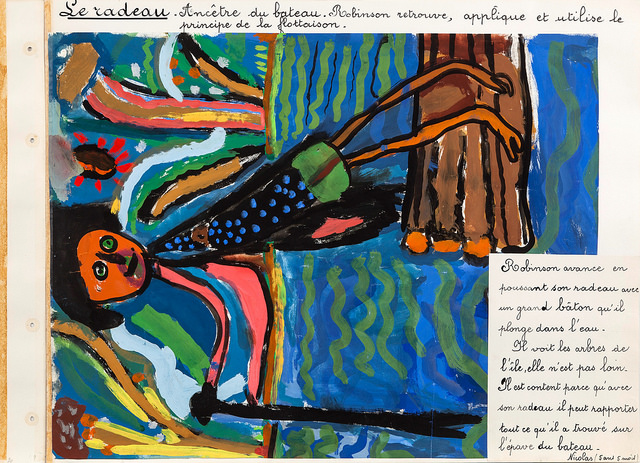 Le radeau. Ancêtre du bateau. Robinson retrouve, applique et utilise le
principe de la flottaison.
Robinson avance en
poussant son radeau avec
un grand bâton qu'il
plonge dans l'eau.
Il voit les arbres de
l'île, elle n'est pas loin.
Il est content parce qu'avec
son radeau il peut rapporter
tout ce qu'il a trouvé sur
l'épave du bateau.
Nicolas / 5 ans 5 mois